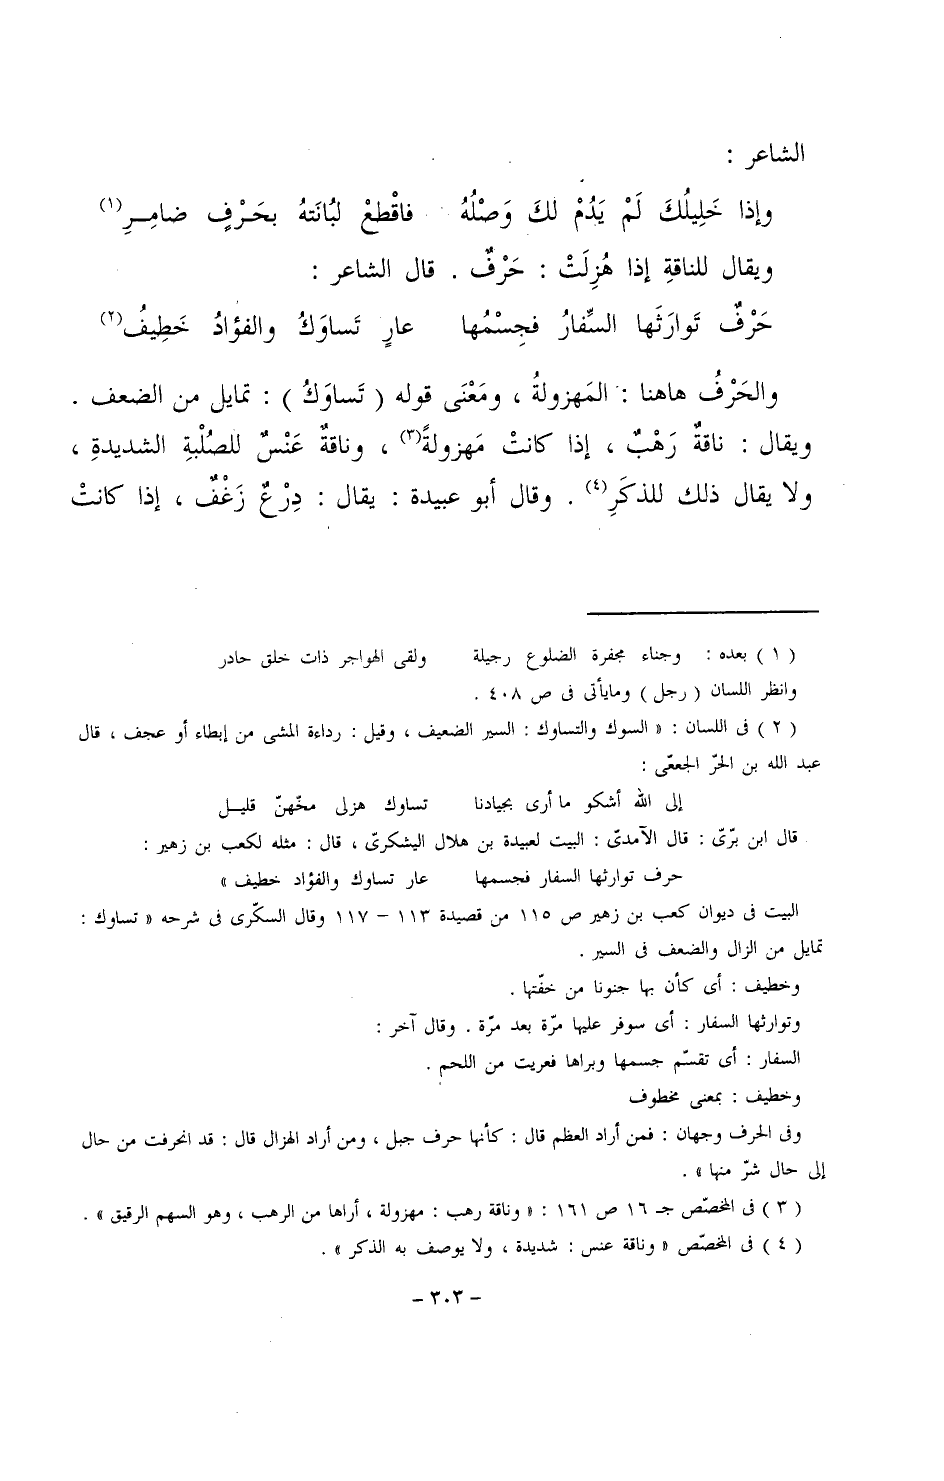 الشاعر :
وإذا خَلِيلُكَ لَمْ يَدُمْ لكَ وَصْلُهُ فاقْطعْ لبُانَتهُ بحَـرْفٍ ضامِـرِ(١)
ويقال للناقةِ إذا هُزِلَتْ : حَرْفٌ . قال الشاعر :
حَرْفٌ تَوارَثَها السِّفارُ فجِسْمُها عارٍ تَساوَكُ والفؤادُ خَطِيفُ(٢)
والحَرْفُ هاهنا : المَهزولةُ ، ومَعْنَى قوله ( تَساوَكُ ) : تمايل من الضعف .
ويقال : ناقةٌ رَهْبٌ ، إذا كانتْ مَهزولةً(٣) ، وناقةٌ عَنْسٌ للصُلْبةِ الشديدةِ ،
ولا يقال ذلك للذكَرِ(٤) . وقال أبو عبيدة : يقال : دِرْعٌ زَغْفٌ ، إذا كانتْ
( ١ ) بعده : وجناء مجفرة الضلوع رجيلة ولقى الهواجر ذات خلق حادر
وانظر اللسان ( رجل ) ومايأتى فى ص ٤٠٨ .
( ٢ ) فى اللسان : « السوك والتساوك : السير الضعيف ، وقيل : رداءة المشى من إبطاء أو عجف ، قال
عبد الله بن الحرّ الجعفّى :
إلى الله أشكو ما أرى بجيادنا تساوك هزلى مخّهنّ قليـل
قال ابن برّىّ : قال الآمدىّ : البيت لعبيدة بن هلال اليشكرىّ ، قال : مثله لكعب بن زهير :
حرف توارثها السفار فجسمها عار تساوك والفؤاد خطيف »
البيت فى ديوان كعب بن زهير ص ١١٥ من قصيدة ١١٣ – ١١٧ وقال السكّرى فى شرحه « تساوك :
تمايل من الزال والضعف فى السير .
وخطيف : أى كأن بها جنونا من خفّتها .
وتوارثها السفار : أى سوفر عليها مرّة بعد مرّة . وقال آخر :
السفار : أى تقسّم جسمها وبراها فعريت من اللحم .
وخطيف : بمعنى مخطوف
وفى الحرف وجهان : فمن أراد العظم قال : كأنها حرف جبل ، ومن أراد الهزال قال : قد انحرفت من حال
إلى حال شرّ منها » .
( ٣ ) فى المخصّص جـ ١٦ ص ١٦١ : « وناقة رهب : مهزولة ، أراها من الرهب ، وهو السهم الرقيق » .
( ٤ ) فى المخصّص « وناقة عنس : شديدة ، ولا يوصف به الذكر » .
– ٣٠٣ –